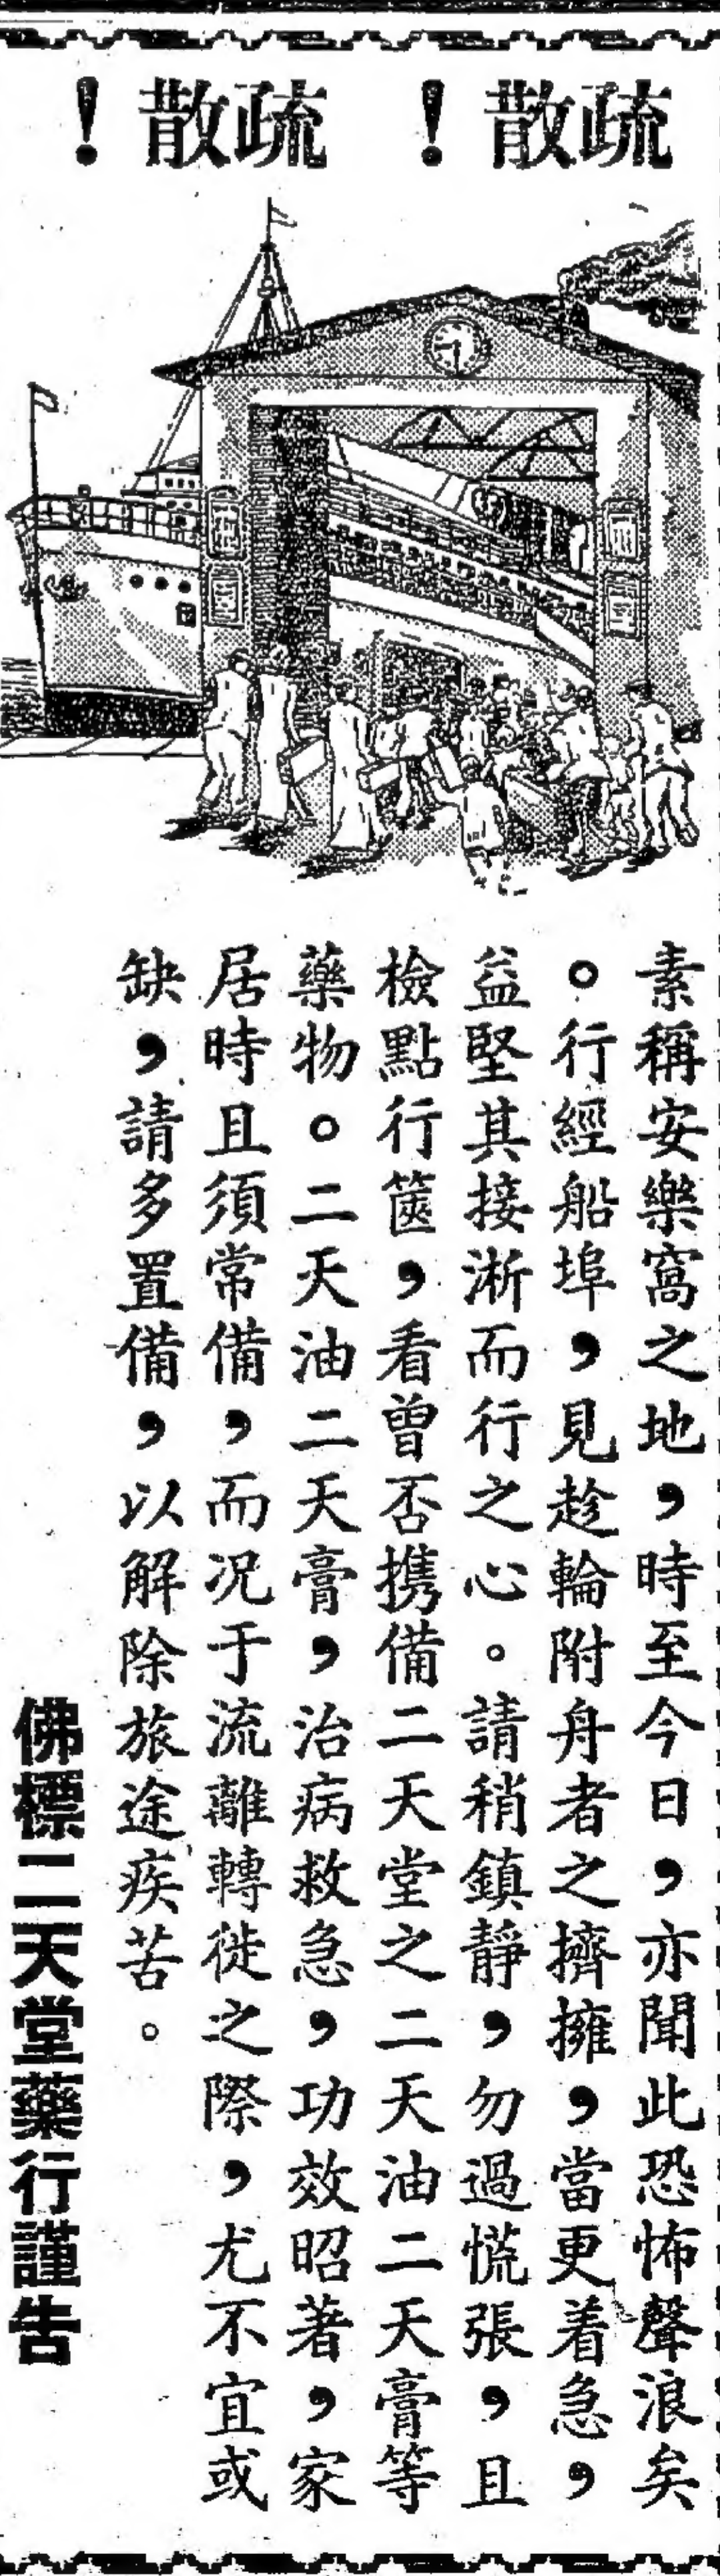 疏散！ 疏散！
素稱安樂窩之地，時至今日，亦聞此恐怖聲浪矣
。行經船埠，見趁輪附舟者之擠擁，當更着急，
益堅其接淅而行之心。請稍鎮靜，勿過慌張，且
檢點行篋，看曾否携備二天堂之二天油二天膏等
藥物。二天油二天膏，治病救急，功效昭著，家
居時且須常備，而况于流離轉徙之際，尤不宜或
缺，請多置備，以解除旅途疾苦。
佛標二天堂藥行謹告